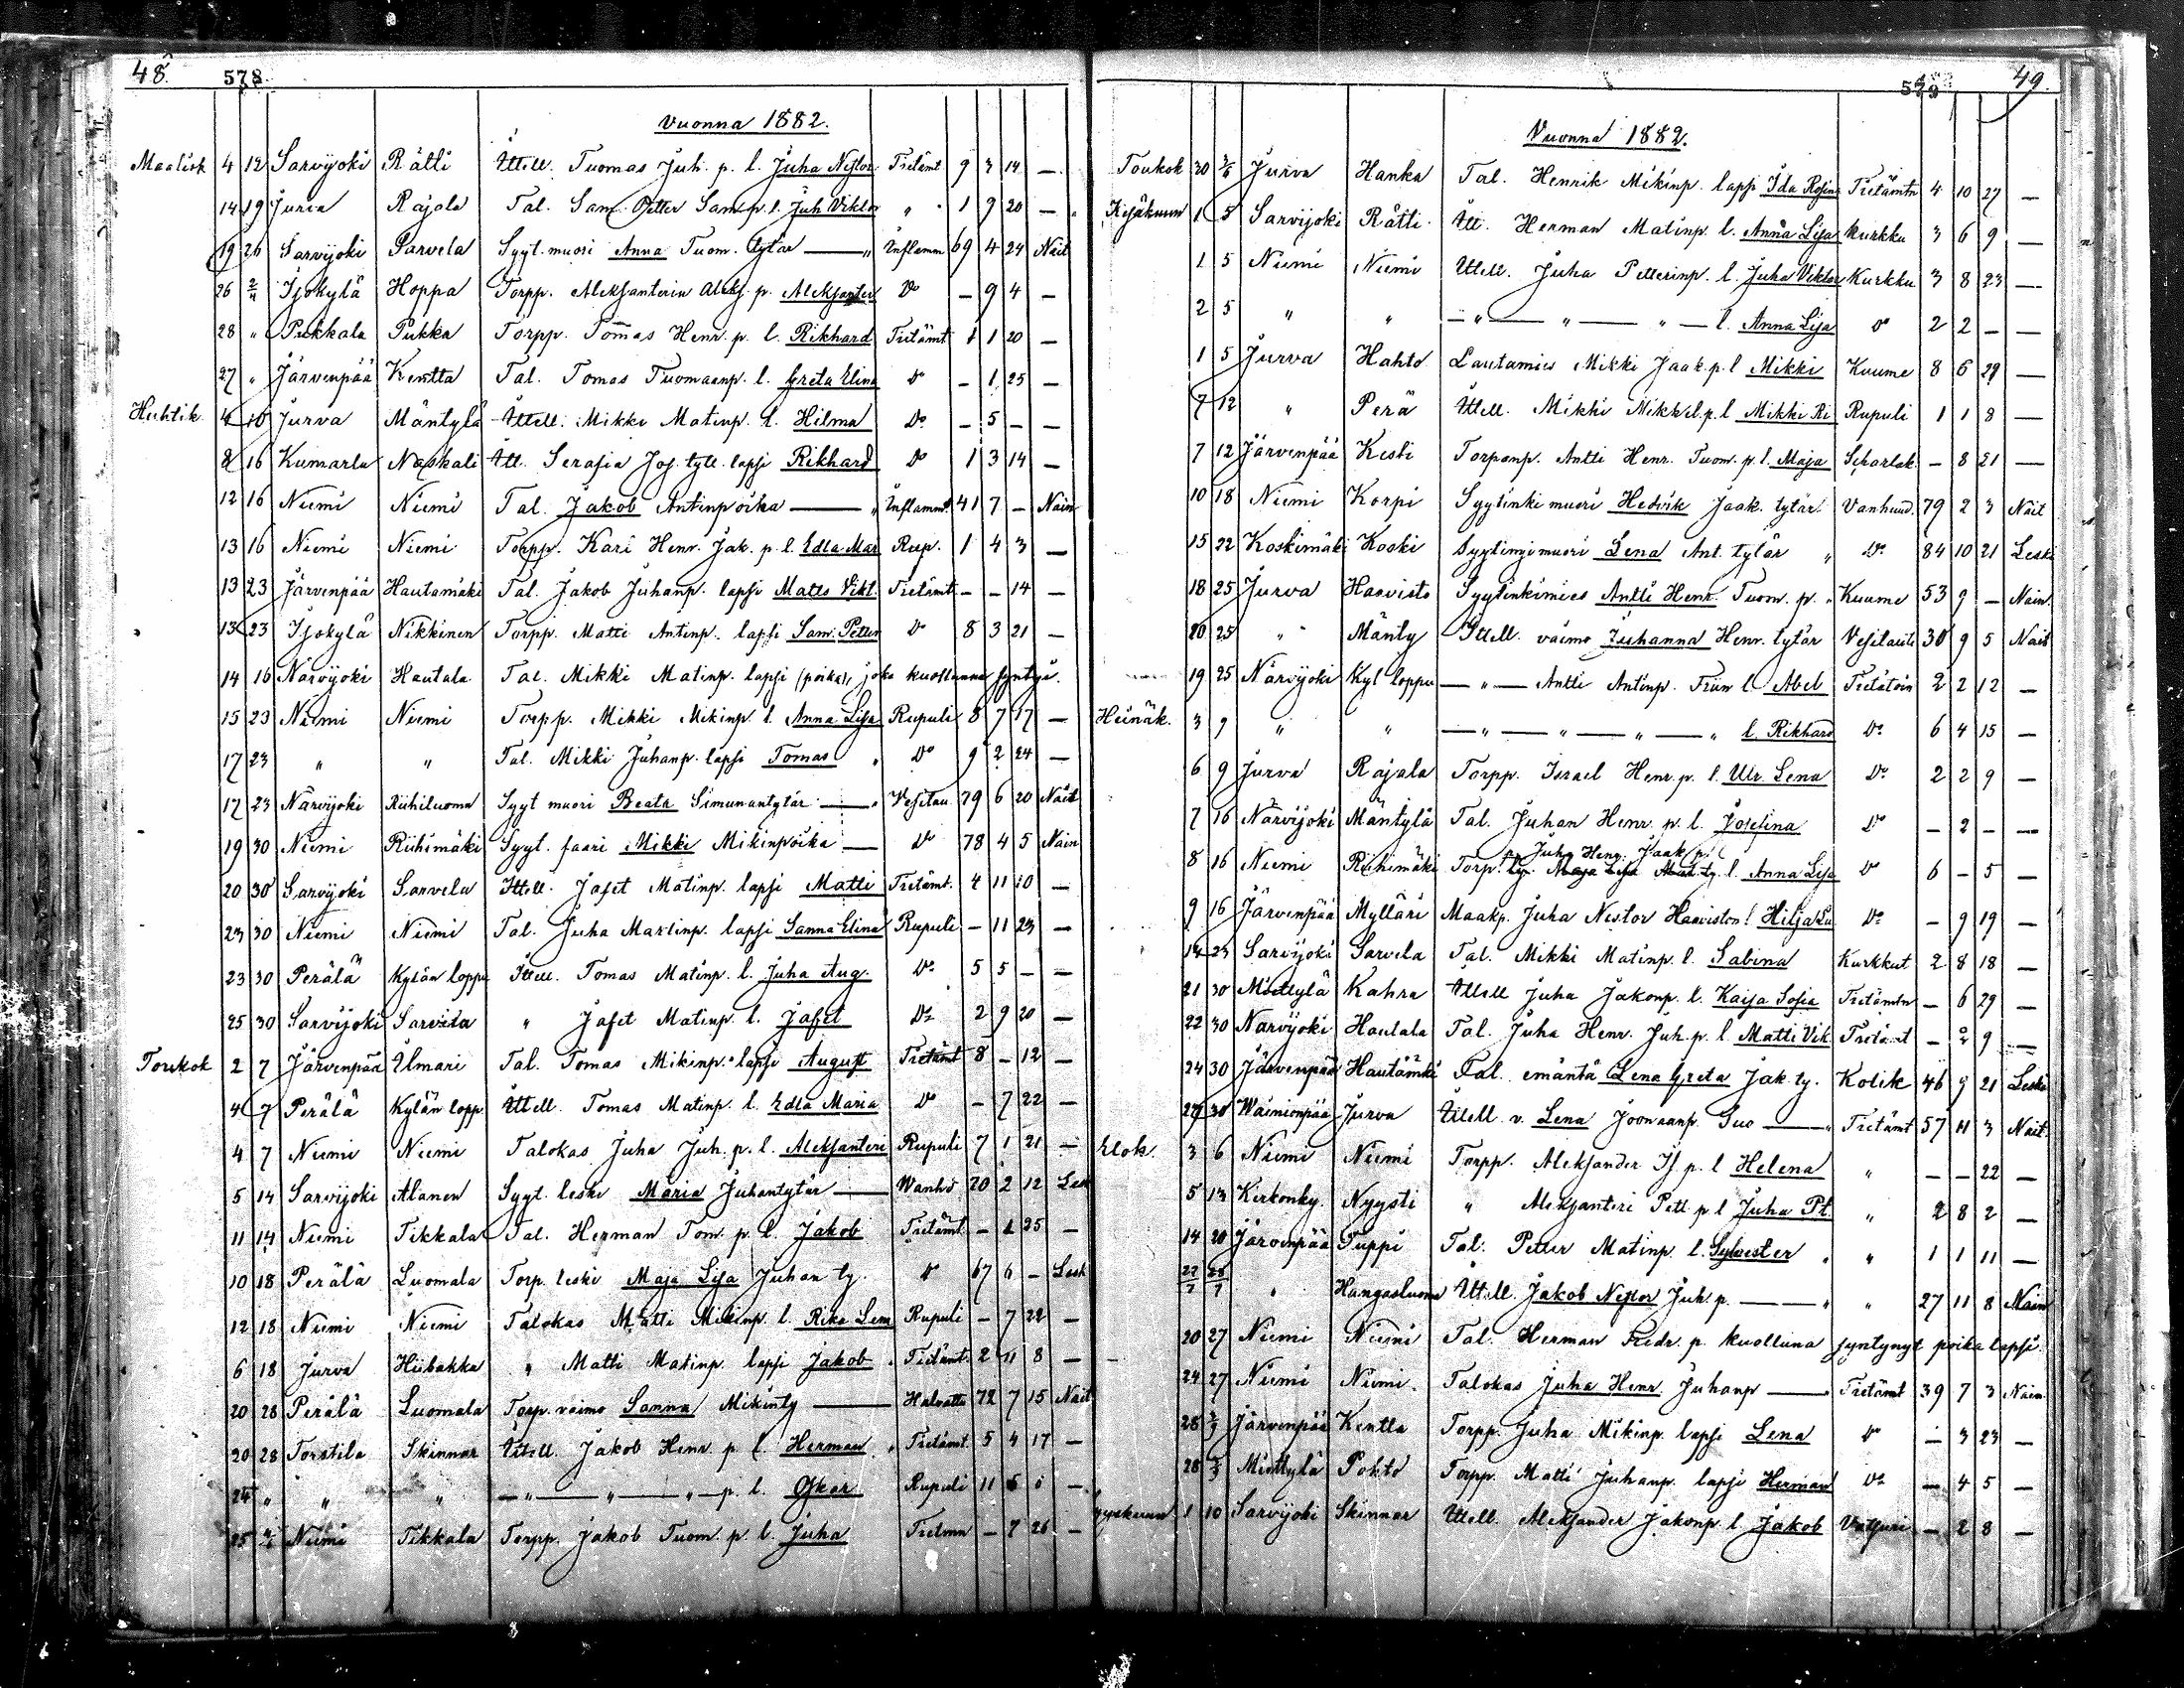 48. 578
Vuonna 1882.
Maalisk 4 12 Sarvijoki Rätti Ittell. Tuomas Juh. p. l. Juha Nestor Tietämt 9 3 14 —
14 19 Jurva Rajala Tal. Sam. Petter Sam. p. l. Juh Viktor " 1 9 20 —
19 26 Sarvijoki Parvela Sygt. muori Anna Tuom. tytär — " Inflamm 69 4 24 Nait
26 2/4 Ijokylä Hoppa Torpp. Aleksanterin Aleks. p. Aleksanter Do — 9 4 —
28 " Pukkala Pukka Torpp. Tom̄as Henr. p. l. Rikhard Tietämt 1 1 20 —
27 " Järvenpää Kentta Tal. Tomas Tuomaanp. l. Greta Elina Do — 1 25 —
Huhtik. 4 10 Jurva Mäntylä Ittell. Mikki Matinp. l. Hilma Do — 5 — —
8 16 Kumarla Naskali Itt. Serafia Jos. tytt. lapsi Rikhard Do 1 3 14 —
12 16 Niemi Niemi Tal. Jakob Antinpoika — " Inflamm. 41 7 — Nain
13 16 Niemi Niemi Torpp. Kari Henr. Jak. p. l. Edla Mar Rup. 1 4 3 —
13 23 Järvenpää Hautamäki Tal. Jakob Juhanp. lapsi Matts Vikt. Tietämt — — 14 —
13 23 Ijokylä Nikkinen Torpp. Matti Antinp. lapsi Sam. Petter Do 8 3 21 —
14 16 Närvijoki Hautala Tal. Mikki Matinp. lapsi (poika), joka kuolluna syntyi.
15 23 Niemi Niemi Torpp. Mikki Mikinp. l. Anna Lisa Rupuli 8 7 17 —
17 23 " " Tal. Mikki Juhanp. lapsi Tomas " Do 9 2 24 —
17 23 Närvijoki Riihiluoma Sygt muori Beata Simunantytär — " Vesitau 79 6 20 Nait
19 30 Niemi Riihimäki Sygt. faari Mikki Mikinpoika — Do 78 4 5 Nain
20 30 Sarvijoki Sarvela Ittell. Jafet Matinp. lapsi Matti Tietämt. 4 11 10 —
23 30 Niemi Niemi Tal. Juha Martinp. lapsi Sanna Elina Rupuli — 11 23 —
23 30 Perälä Kylän loppu Ittell. Tomas Matinp. l. Juha Aug. Do 5 5 — —
25 30 Sarvijoki Sarvela " Jafet Matinp. l. Jafet Do 2 9 20 —
Toukok 2 7 Järvenpää Ilmari Tal. Tomas Mikinp. lapsi August Tietämt 8 — 12 —
4 7 Perälä Kylän lopp. Ittell. Tomas Matinp. l. Edla Maria Do — 7 22 —
4 7 Niemi Niemi Talokas Juha Juh. p. l. Aleksanteri Rupuli 7 1 21 —
5 14 Sarvijoki Alanen Sygt. leski Maria Juhantytär — Wanhd 70 2 12 Lesk
11 14 Niemi Tikkala Tal. Herman Tom. p. l. Jakob Tietämt — 1 25 —
10 18 Perälä Luomala Torp. leski Maja Lisa Juhan ty. Do 67 6 — Lesk
12 18 Niemi Niemi Talokas Matti Mikinp. l. Rika Lena Rupuli — 7 22 —
6 18 Jurva Hiibakka " Matti Matinp. lapsi Jakob Tietämt. 2 11 8 —
20 28 Perälä Luomala Torp. vaimo Sanna Mikinty — Halvattu 72 7 15 Nait
20 28 Torstila Skinnar Ittell. Jakob Henr. p. l. Herman Tietämt. 5 4 17 —
24 " " " — " — " — " — p. l. Oskar Rupuli 11 6 —
25 4/6 Niemi Tikkala Torpp. Jakob Tuom. p. l. Juha — 7 26 —
579 49.
Vuonna 1882.
Toukok 30 Jurva Hanka Tal. Henrik Mikinp. lapsi Ida Rosina Tietämtn 4 10 27 —
Kesäkuun 1 5 Sarvijoki Rätti Itt. Herman Matinp. l. Anna Lisa kurkku 3 6 9 —
1 5 Niemi Niemi Ittell. Juha Petterinp. l. Juha Viktor Kurkku 3 8 23 —
2 5 " " — " — " — " — l. Anna Lisa Do 2 2 — —
1 5 Jurva Hahto Lautamies Mikki Jaak. p. l Mikki Kuume 8 6 29 —
7 12 " Perä Ittell. Mikki Mikkel. p. l Mikki Ri Rupuli 1 1 8 —
7 12 Järvenpää Kesti Torpanp. Antti Henr. Tuom. p. l. Maja Scharlak. — 8 21 —
10 18 Niemi Korpi Sygtinki muori Hedvik Jaak. tytär Vanhuud. 79 2 3 Nait
15 22 Koskimäki Koski Sygtingi muori Lena Ant. tytär " Do 84 10 21 Leski
18 25 Jurva Haavisto Sygtinkimies Antti Henr. Tuom. p. " Kuume 53 9 — Nain.
20 25 " Mänty Ittell. vaimo Juhanna Henr. tytär Vesitauti 30 9 5 Nait
19 25 Närvijoki Kyl loppu — " — Antti Antinp. l. Abel Tietätöin 2 2 12 —
Heinäk. 3 9 " " — " — " — " — " l. Rikhard Do 6 4 15 —
6 9 Jurva Rajala Torpp. Israel Henr. p. l. Ulr. Lena Do 2 2 9 —
7 16 Närvijoki Mäntylä Tal. Juhan Henr. p. l. Josefina Do — 2 — —
p. Juha Henr. Jaak p.
8 16 Niemi Riihimäki Torp. l. Anna Lisa Do 6 — 5 —
9 16 Järvenpää Mylläri Maakp. Juha Nestor Haaviston l. Hilja Lu Do — 9 19 —
14 23 Sarvijoki Sarvela Tal. Mikki Matinp. l. Sabina Kurkkut 2 8 18 —
21 30 Miettylä Kahra Ittell Juha Jakonp. l. Kaisa Sofia Tietämtn — 6 29 —
22 30 Närvijoki Hautala Tal. Juha Henr. Juh. p. l Matti Vik Tietämt — 2 9 —
24 30 Järvenpää Hautämki Tal. emäntä Lena Greta Jak. ty. Kolik 46 9 21 Leski
27 30 Wäinionpää Jurva Ittell. v. Lena Joonaanp. — " Tietämt 57 11 3 Nait.
Elok. 3 6 Niemi Niemi Torpp. Aleksander Is. p. l Helena " — — 22 —
5 13 Kirkonky. Nyysti " Aleksanteri Pett. p. l Juha Pt. " 2 8 2 —
14 20 Järvenpää Tuppi Tal. Petter Matinp. l. Sylvester " 1 1 11 —
22/7 28/7 " Hangasluoma Ittell. Jakob Nestor Juh. p. — " " 27 11 8 Nain
20 27 Niemi Niemi Tal. Herman Fredr. p. kuolluna syntynyt poika lapsi.
24 27 Niemi Niemi. Talokas Juha Henr. Juhanp — Tietämt 39 7 3 Nain
28 3/9 Järvenpää Kentta Torpp. Juha Mikinp. lapsi Lena Do — 3 23 —
28 3/9 Miettylä Pohto Torpp. Matti Juhanp. lapsi Herman Do — 4 5 —
Syyskuun 1 10 Sarvijoki Skinnar Ittell. Aleksander Jakonp. l Jakob — 2 8 —